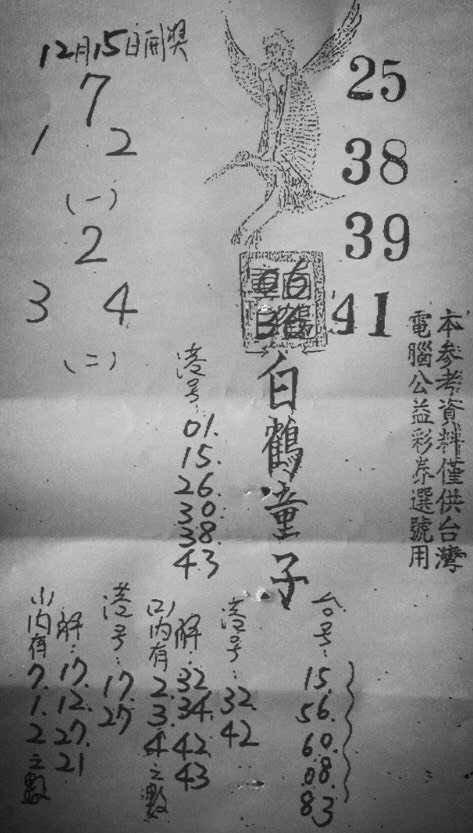 12月15日開獎
7
1 2
(一)
2
3 4
(二)
25
38
39
41
白鶴童子
本參考資料僅供台灣
電腦公益彩券選號用
港号:
01.
15.
26.
30.
38.
43
台号:
15.
56.
60.
08.
83
港号:
32.
42
解:32
34.
42.
43
(二)內有
2.
3.
4之數
港号:
17.
27
解:17.
12.
27.
21
(一)內有
7.
1.
2之數